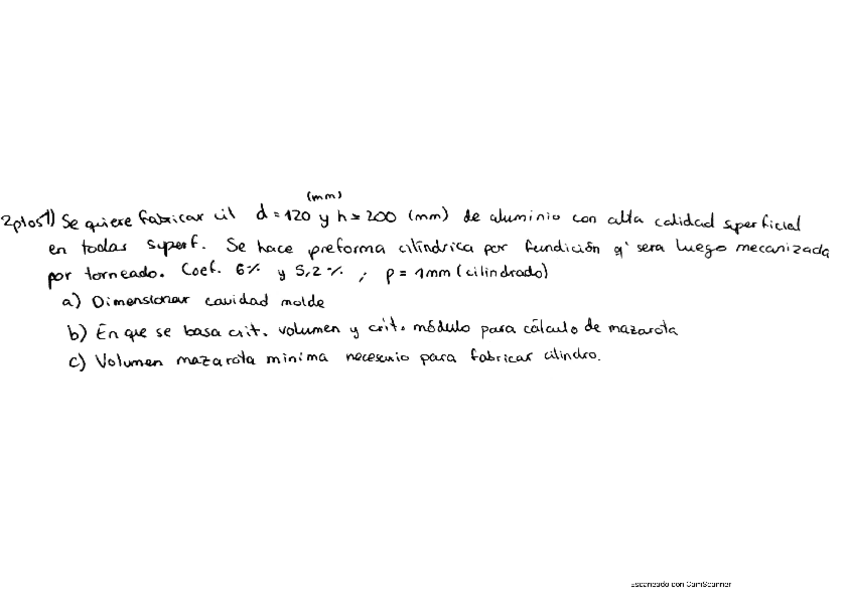 (mm)
2ptos1) Se quiere fabricar cil d = 120 y h = 200 (mm) de aluminio con alta calidad superficial
en todas superf. Se hace preforma cilíndrica por fundición q' sera luego mecanizada
por torneado. Coef. 6% y 5,2%. ; p = 1mm (cilindrado)
a) Dimensionar cavidad molde
b) En que se basa crit. volumen y crit. módulo para cálculo de mazarota
c) Volumen mazarota minima necesario para fabricar cilindro.
Escaneado con CamScanner